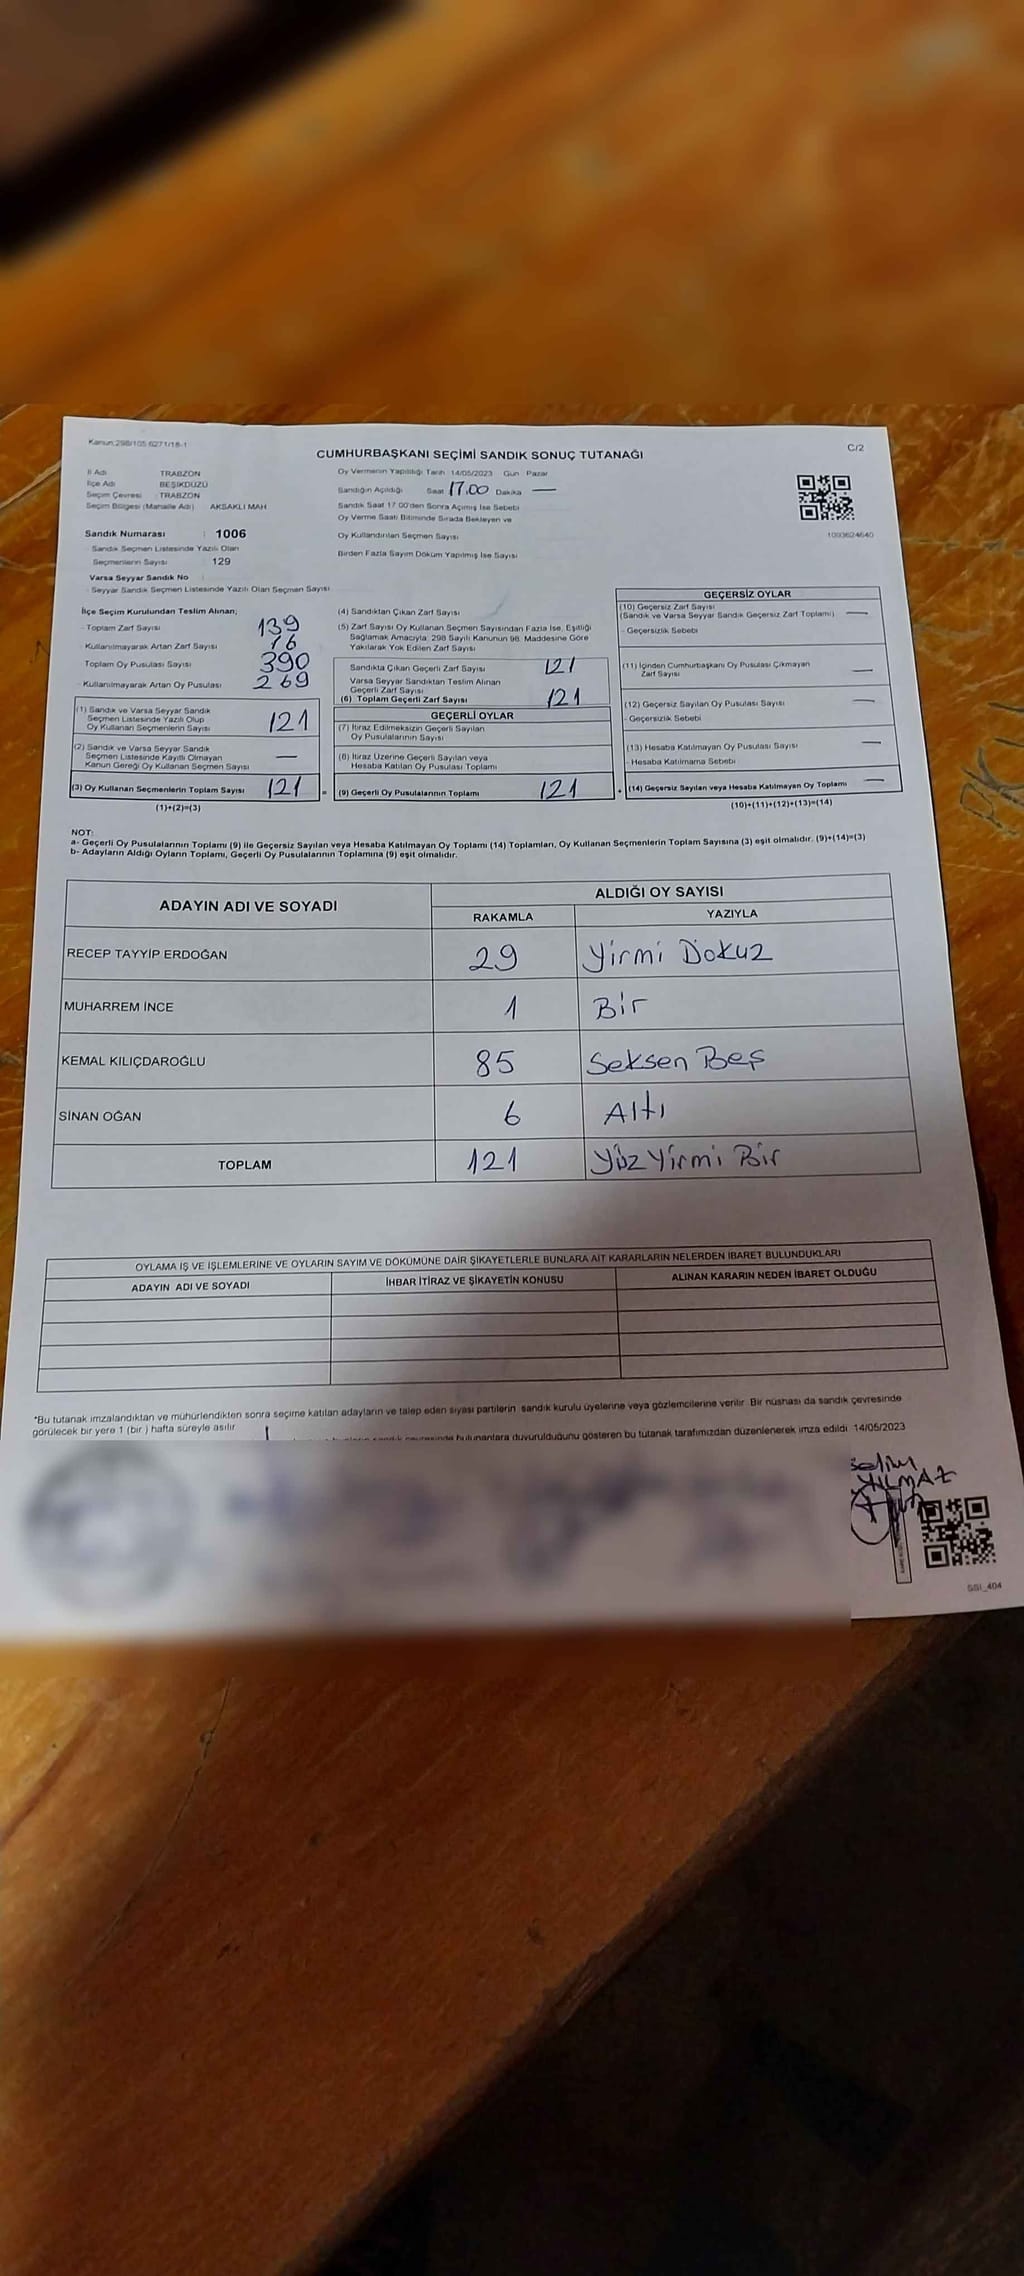 Kanun;298/105 6271/18-1
C/2
CUMHURBAŞKANI SEÇİMİ SANDIK SONUÇ TUTANAĞI
İl Adı TRABZON
İlçe Adı BEŞİKDÜZÜ
Seçim Çevresi : TRABZON
Seçim Bölgesi (Mahalle Adı) AKSAKLI MAH
Oy Vermenin Yapıldığı Tarih 14/05/2023 Gün Pazar
Sandığın Açıldığı Saat 17.00 Dakika —
Sandık Saat 17.00'den Sonra Açımış İse Sebebi
Oy Verme Saati Bitiminde Sırada Bekleyen ve
Oy Kullandırılan Seçmen Sayısı
Birden Fazla Sayım Döküm Yapılmış İse Sayısı
1093624640
Sandık Numarası : 1006
Sandık Seçmen Listesinde Yazılı Olan
Seçmenlerin Sayısı 129
Varsa Seyyar Sandık No
Seyyar Sandık Seçmen Listesinde Yazılı Olan Seçmen Sayısı
İlçe Seçim Kurulundan Teslim Alınan;
- Toplam Zarf Sayısı 139
- Kullanılmayarak Artan Zarf Sayısı
Toplam Oy Pusulası Sayısı 390
- Kullanılmayarak Artan Oy Pusulası 269
(1) Sandık ve Varsa Seyyar Sandık
Seçmen Listesinde Yazılı Olup
Oy Kullanan Seçmenlerin Sayısı 121
(2) Sandık ve Varsa Seyyar Sandık
Seçmen Listesinde Kayıtlı Olmayan
Kanun Gereği Oy Kullanan Seçmen Sayısı —
(3) Oy Kullanan Seçmenlerin Toplam Sayısı 121 =
(1)+(2)=(3)
(4) Sandıktan Çıkan Zarf Sayısı
(5) Zarf Sayısı Oy Kullanan Seçmen Sayısından Fazla İse, Eşitliği
Sağlamak Amacıyla, 298 Sayılı Kanunun 98. Maddesine Göre
Yakılarak Yok Edilen Zarf Sayısı
Sandıkta Çıkan Geçerli Zarf Sayısı 121
Varsa Seyyar Sandıktan Teslim Alınan
Geçerli Zarf Sayısı
(6) Toplam Geçerli Zarf Sayısı 121
GEÇERLİ OYLAR
(7) İtiraz Edilmeksizin Geçerli Sayılan
Oy Pusulalarının Sayısı
(8) İtiraz Üzerine Geçerli Sayılan veya
Hesaba Katılan Oy Pusulası Toplamı
(9) Geçerli Oy Pusulalarının Toplamı 121 +
GEÇERSİZ OYLAR
(10) Geçersiz Zarf Sayısı
(Sandık ve Varsa Seyyar Sandık Geçersiz Zarf Toplamı) —
- Geçersizlik Sebebi
(11) İçinden Cumhurbaşkanı Oy Pusulası Çıkmayan
Zarf Sayısı —
(12) Geçersiz Sayılan Oy Pusulası Sayısı —
- Geçersizlik Sebebi
(13) Hesaba Katılmayan Oy Pusulası Sayısı —
- Hesaba Katılmama Sebebi
(14) Geçersiz Sayılan veya Hesaba Katılmayan Oy Toplamı —
(10)+(11)+(12)+(13)=(14)
NOT:
a- Geçerli Oy Pusulalarının Toplamı (9) ile Geçersiz Sayılan veya Hesaba Katılmayan Oy Toplamı (14) Toplamları, Oy Kullanan Seçmenlerin Toplam Sayısına (3) eşit olmalıdır. (9)+(14)=(3)
b- Adayların Aldığı Oyların Toplamı, Geçerli Oy Pusulalarının Toplamına (9) eşit olmalıdır.
ADAYIN ADI VE SOYADI ALDIĞI OY SAYISI
RAKAMLA YAZIYLA
RECEP TAYYİP ERDOĞAN 29 Yirmi Dokuz
MUHARREM İNCE 1 Bir
KEMAL KILIÇDAROĞLU 85 Seksen Beş
SİNAN OĞAN 6 Altı
TOPLAM 121 Yüz Yirmi Bir
OYLAMA İŞ VE İŞLEMLERİNE VE OYLARIN SAYIM VE DÖKÜMÜNE DAİR ŞİKAYETLERLE BUNLARA AİT KARARLARIN NELERDEN İBARET BULUNDUKLARI
ADAYIN ADI VE SOYADI İHBAR İTİRAZ VE ŞİKAYETİN KONUSU ALINAN KARARIN NEDEN İBARET OLDUĞU
*Bu tutanak imzalandıktan ve mühürlendikten sonra seçime katılan adayların ve talep eden siyasi partilerin sandık kurulu üyelerine veya gözlemcilerine verilir. Bir nüshası da sandık çevresinde
görülecek bir yere 1 (bir ) hafta süreyle asılır
bulunanlara duyurulduğunu gösteren bu tutanak tarafımızdan düzenlenerek imza edildi. 14/05/2023
Selim
YILMAZ
SSI_404